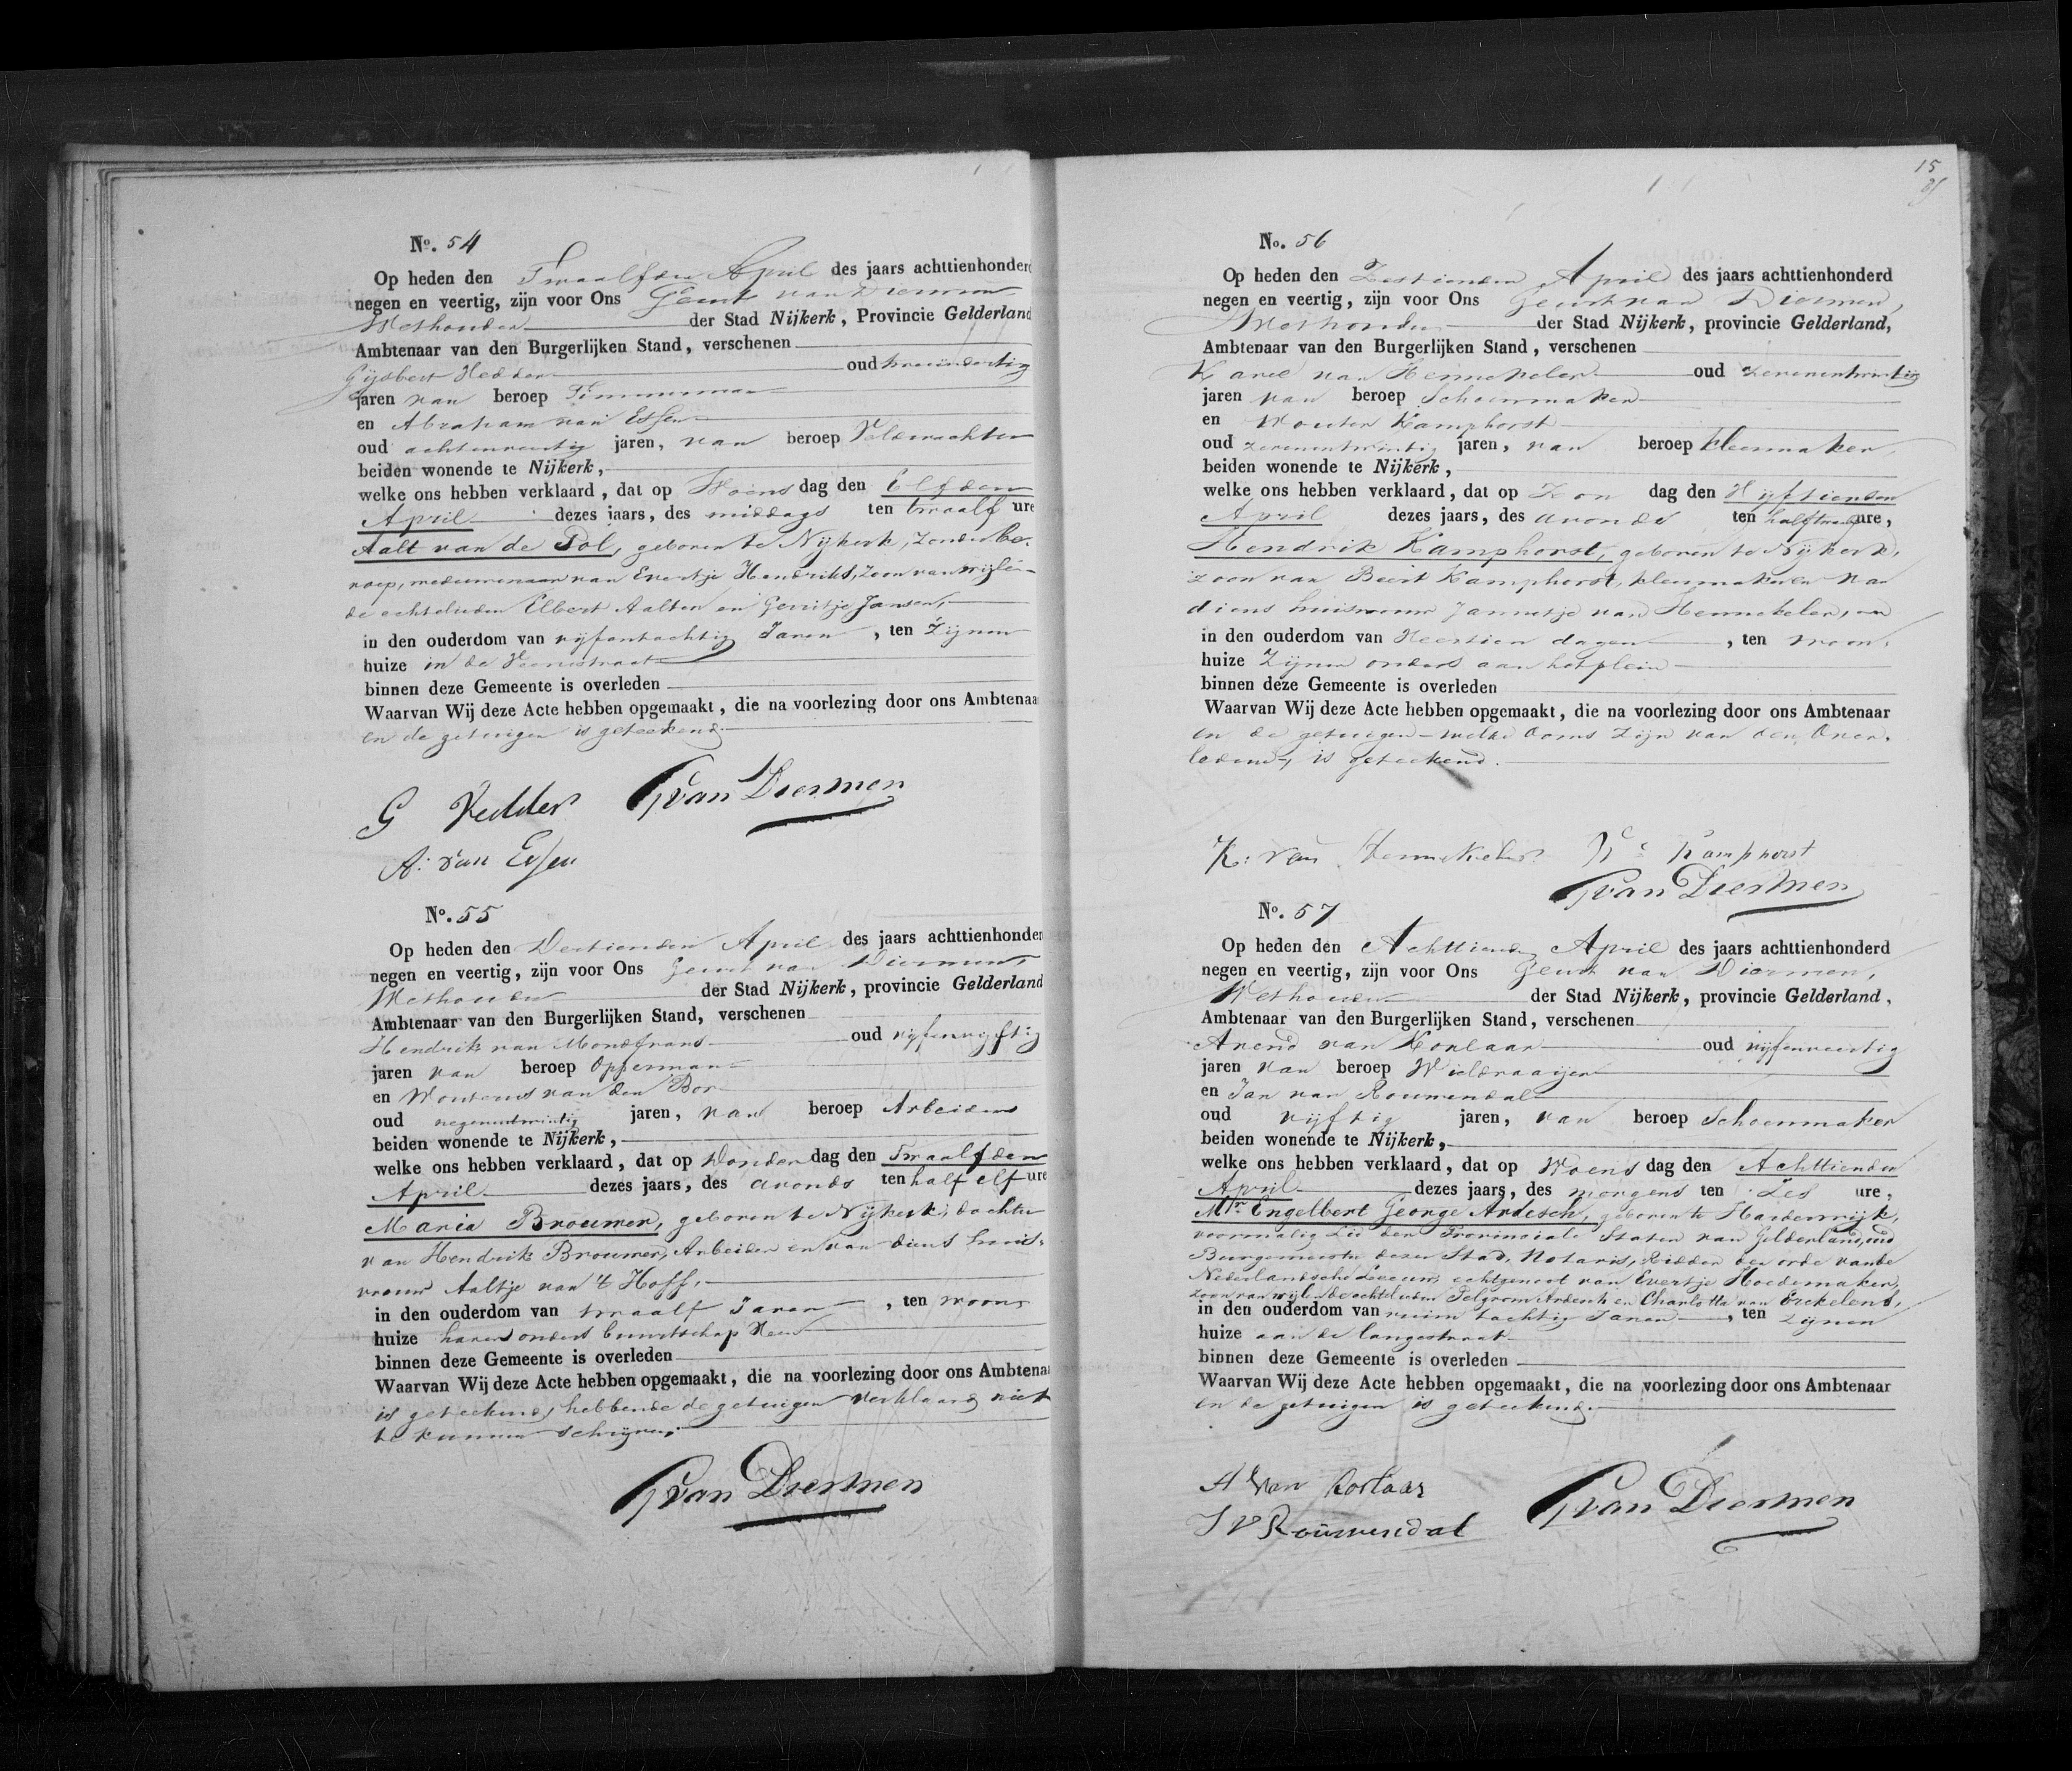 No. 54
Op heden den Twaalfden April des jaars achttienhonderd
negen en veertig, zijn voor Ons Geurt van Diermen
Wethouder der Stad Nijkerk, Provincie Gelderland
Ambtenaar van den Burgerlijken Stand, verschenen
Gijsbert Vedder oud
jaren van beroep Timmerman
en Abraham van Essen
oud achtenveertig jaren, van beroep Veldwachter
beiden wonende te Nijkerk,
welke ons hebben verklaard, dat op Woens dag den Elfden
April dezes jaars, des middags ten twaalf ure
Aalt van de Pol, geboren te Nijkerk, zonder be-
roep, weduwenaar van Evertje Hendriks, zoon van wijle
de echtelieden Elbert Aalten en Gerritje Jansen,
in den ouderdom van vijfentachtig Jaren, ten Zijnen
huize in de Veenestraat
binnen deze Gemeente is overleden
Waarvan Wij deze Acte hebben opgemaakt, die na voorlezing door ons Ambtenaa
en de getuigen is geteekend.
G Vedder GvanDiermen
A: van Essen
No. 55
Op heden den Dertienden April des jaars achttienhonder
negen en veertig, zijn voor Ons Geurt van Diermen,
Wethouder der Stad Nijkerk, provincie Gelderland
Ambtenaar van den Burgerlijken Stand, verschenen
Hendrik van Mondfrans oud vijfenvijftig
jaren van beroep Opperman
en Wouterus van den Bor
oud negenentwintig jaren, van beroep Arbeider
beiden wonende te Nijkerk,
welke ons hebben verklaard, dat op Donder dag den Twaalfden
April dezes jaars, des avonds ten half elf ure
Maria Brouwer, geboren te Nijkerk, dochter
van Hendrik Brouwer, Arbeider en van diens huis-
vrouw Aaltje van 't Hoff,
in den ouderdom van twaalf Jaren, ten woon-
huize harer ouders buurtschap Veen
binnen deze Gemeente is overleden
Waarvan Wij deze Acte hebben opgemaakt, die na voorlezing door ons Ambtenaa
is geteekend, hebbende de getuigen verklaard niet
te kunnen schrijven.
GvanDiermen
15
No. 56
Op heden den Zestienden April des jaars achttienhonderd
negen en veertig, zijn voor Ons Geurt van Diermen,
Wethouder der Stad Nijkerk, provincie Gelderland,
Ambtenaar van den Burgerlijken Stand, verschenen
Karel van Hennekeler oud zevenentwintig
jaren van beroep Schoenmaker
en Wouter Kamphorst
oud zevenentwintig jaren, van beroep kleermaker,
beiden wonende te Nijkerk,
welke ons hebben verklaard, dat op Zon dag den Vijftienden
April dezes jaars, des avonds ten half twaalf ure,
Hendrik Kamphorst, geboren te Nijkerk,
zoon van Beert Kamphorst, kleermaker en van
diens huisvrouw Jannetje van Hennekeler,
in den ouderdom van Veertien dagen, ten woon-
huize Zijner ouders aan het plein
binnen deze Gemeente is overleden
Waarvan Wij deze Acte hebben opgemaakt, die na voorlezing door ons Ambtenaar
en de getuigen - welke Ooms zijn van den Over-
ledene -, is geteekend.
K: van Hennekeler W: Kamphorst
GvanDiermen
No. 57
Op heden den Achttienden April des jaars achttienhonderd
negen en veertig, zijn voor Ons Geurt van Diermen,
Wethouder der Stad Nijkerk, provincie Gelderland,
Ambtenaar van den Burgerlijken Stand, verschenen
Arend van Korlaar oud vijfenveertig
jaren van beroep Wieldraaijer
en Jan van Roumendal
oud vijftig jaren, van beroep Schoenmaker
beiden wonende te Nijkerk,
welke ons hebben verklaard, dat op Woens dag den Achttienden
April dezes jaars, des morgens ten Zes ure,
Mr. Engelbert George Ardesch, geboren te Harderwijk,
voormalig Lid der Provinciale Staten van Gelderland, oud
Burgemeester dezer Stad, Notaris, Ridder der orde van de
Nederlandsche Leeuw, echtgenoot van Evertje Hoedemaker,
zoon van wijlen de echtelieden Pelgrom Ardesch en Charlotta van Erckelens,
in den ouderdom van ruim tachtig Jaren, ten Zijnen
huize aan de langestraat
binnen deze Gemeente is overleden
Waarvan Wij deze Acte hebben opgemaakt, die na voorlezing door ons Ambtenaar
en de getuigen is geteekend.
A van Korlaar GvanDiermen
J V Roumendal